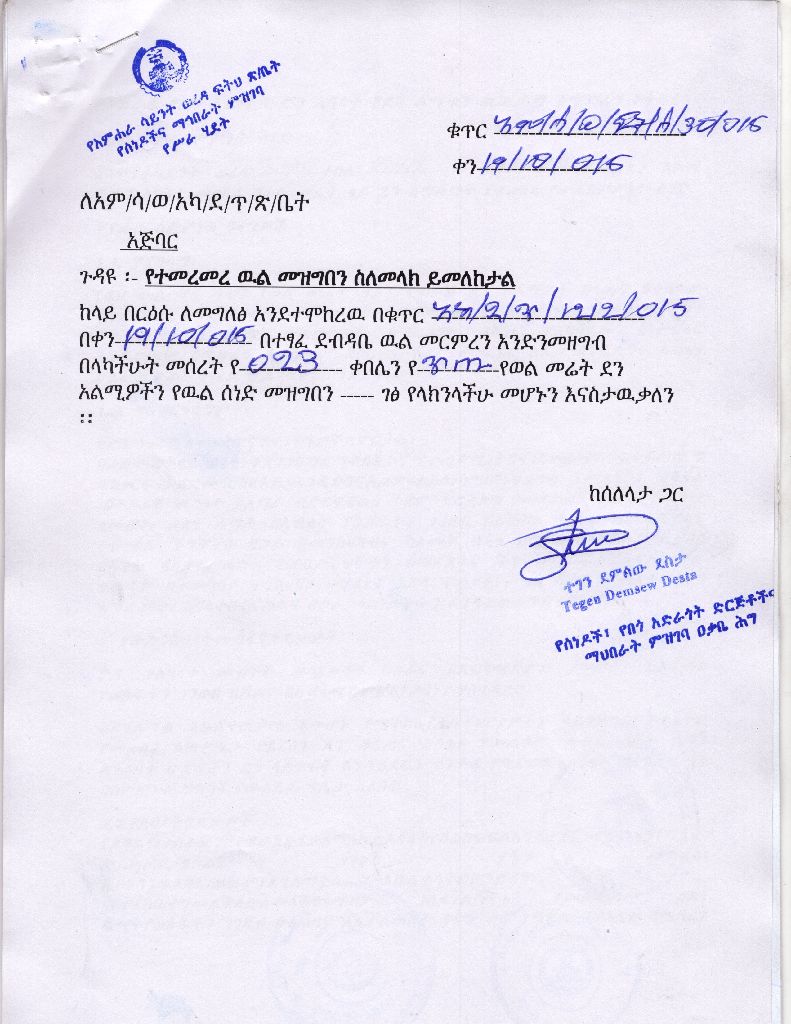 የአምሐራ ሳይንት ወረዳ ፍትህ ጽ/ቤት
የሰነዶችና ማኅበራት ምዝገባ
የሥራ ሂደት
ቁጥር
ቀን 19/10/015
ለአም/ሳ/ወ/አካ/ደ/ጥ/ጽ/ቤት
አጅባር
ጉዳዩ ፡- የተመረመረ ዉል መዝግበን ስለመላክ ይመለከታል
ከላይ በርዕሱ ለመግለፅ እንደተሞከረዉ በቁጥር
በቀን 19/10/015 በተፃፈ ደብዳቤ ዉል መርምረን እንድንመዘግብ
በላካችሁት መሰረት የ 023 ቀበሌን የ የወል መሬት ደን
አልሚዎችን የዉል ሰነድ መዝግበን ----- ገፅ የላክንላችሁ መሆኑን እናስታዉቃለን
፡፡
ከሰለላታ ጋር
ተገን ደምልው ደስታ
Tegen Demsew Desta
የሰነዶች፣ የበጎ አድራጎት ድርጅቶችና
ማህበራት ምዝገባ ዐቃቤ ሕግ